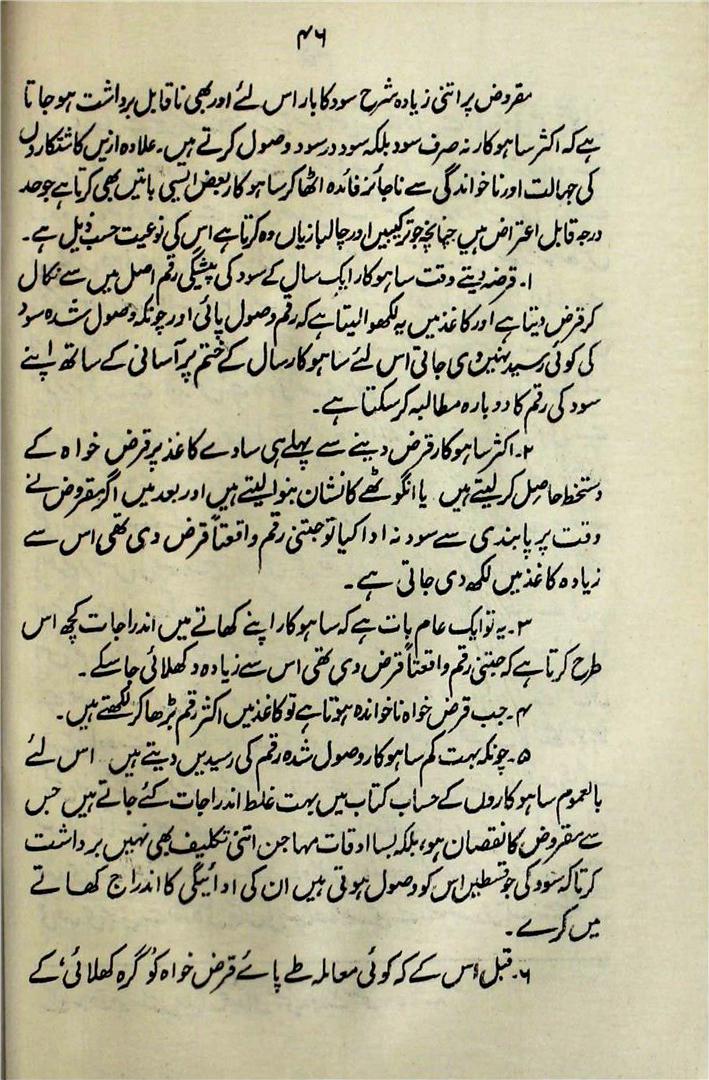 ۴۶
مقروض پر اتنی زیادہ شرح سود کا بار اس لئے اور بھی ناقابل برداشت ہو جاتا
ہے کہ اکثر ساہوکار نہ صرف سود بلکہ سود در سود وصول کرتے ہیں۔ علاوہ ازیں کاشتکاروں
کی جہالت اور ناخواندگی سے ناجائز فائدہ اٹھا کر ساہوکار بعض ایسی باتیں بھی کرتا ہے جو حد
درجہ قابل اعتراض ہیں چنانچہ جو ترکیبیں اور چالبازیاں وہ کرتا ہے اس کی نوعیت حسب ذیل ہے۔
۱۔ قرضہ دیتے وقت ساہوکار ایک سال کے سود کی پیشگی رقم اصل میں سے نکال
کر قرض دیتا ہے اور کاغذ میں یہ لکھوا لیتا ہے کہ رقم وصول پائی اور چونکہ وصول شدہ سود
کی کوئی رسید نہیں دی جاتی اس لئے ساہوکار سال کے ختم پر آسانی کے ساتھ اپنے
سود کی رقم کا دوبارہ مطالبہ کر سکتا ہے۔
۲۔ اکثر ساہوکار قرض دینے سے پہلے ہی سادے کاغذ پر قرض خواہ کے
دستخط حاصل کر لیتے ہیں یا انگوٹھے کا نشان بنوا لیتے ہیں اور بعد میں اگر مقروض نے
وقت پر پابندی سے سود نہ ادا کیا تو جتنی رقم واقعتاً قرض دی تھی اس سے
زیادہ کاغذ میں لکھ دی جاتی ہے۔
۳۔ یہ تو ایک عام بات ہے کہ ساہوکار اپنے کھاتے میں اندراجات کچھ اس
طرح کرتا ہے کہ جتنی رقم واقعتاً قرض دی تھی اس سے زیادہ دکھلائی جا سکے۔
۴۔ جب قرض خواہ ناخواندہ ہوتا ہے تو کاغذ میں اکثر رقم بڑھا کر لکھتے ہیں۔
۵۔ چونکہ بہت کم ساہوکار وصول شدہ رقم کی رسیدیں دیتے ہیں اس لئے
بالعموم ساہوکاروں کے حساب کتاب میں بہت غلط اندراجات کئے جاتے ہیں جس
سے مقروض کا نقصان ہو، بلکہ بسا اوقات مہاجن اتنی تکلیف بھی نہیں برداشت
کرتا کہ سود کی جو قسطیں اس کو وصول ہوتی ہیں ان کی ادائیگی کا اندراج کھاتے
میں کرے۔
۶۔ قبل اس کے کہ کوئی معاملہ طے پائے قرض خواہ کو 'گرہ کھلائی' کے